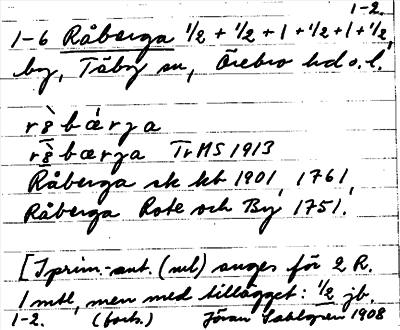 1-2.
1-6 Råberga 1/2 + 1/2 + 1 + 1/2 + 1 + 1/2,
by, Täby sn, Örebro hd o. l.
Råberga sk kb 1901, 1761,
Råberga Rote och By 1751.
[I prim.-ant. (ml) anges för 2 R.
1 mtl, men med tillägget: 1/2 jb.
1-2. (forts.) Jöran Sahlgren 1908